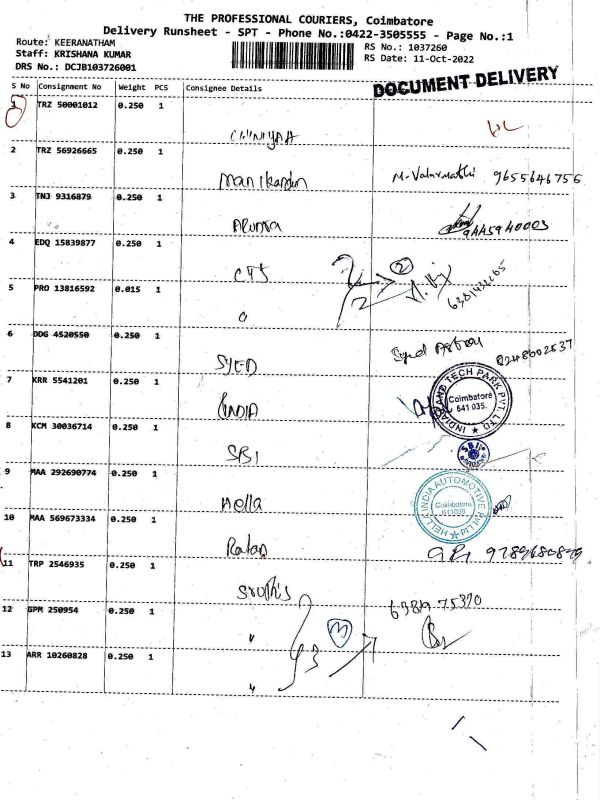 THE PROFESSIONAL COURIERS, Coimbatore
Delivery Runsheet - SPT - Phone No.:0422-3505555 - Page No.:1
Route: KEERANATHAM
RS No.: 1037260
Staff: KRISHANA KUMAR
RS Date: 11-Oct-2022
DRS No.: DCJB103726001
DOCUMENT DELIVERY
S No Consignment No Weight PCS Consignee Details
1 TRZ 50001012 0.250 1
2 TRZ 56926665 0.250 1
Manikandan M. Valarmathi 9655646756
3 TNJ 9316879 0.250 1
Aruna
4 EDQ 15839877 0.250 1
CTS 2
5 PRO 13816592 0.015 1
6 DDG 4520550 0.250 1
SYED
7 KRR 5541201 0.250 1
INDIA
INDIALAND TECH PARK PVT. LTD
Coimbatore
641 035.
8 KCM 30036714 0.250 1
SBI
SBI
9 MAA 292690774 0.250 1
Hella
HELLA INDIA AUTOMOTIVE PVT LTD
Coimbatore
641035
10 MAA 569673334 0.250 1
Ratan
11 TRP 2546935 0.250 1
12 GPM 250954 0.250 1
" 3
13 ARR 10260828 0.250 1
"